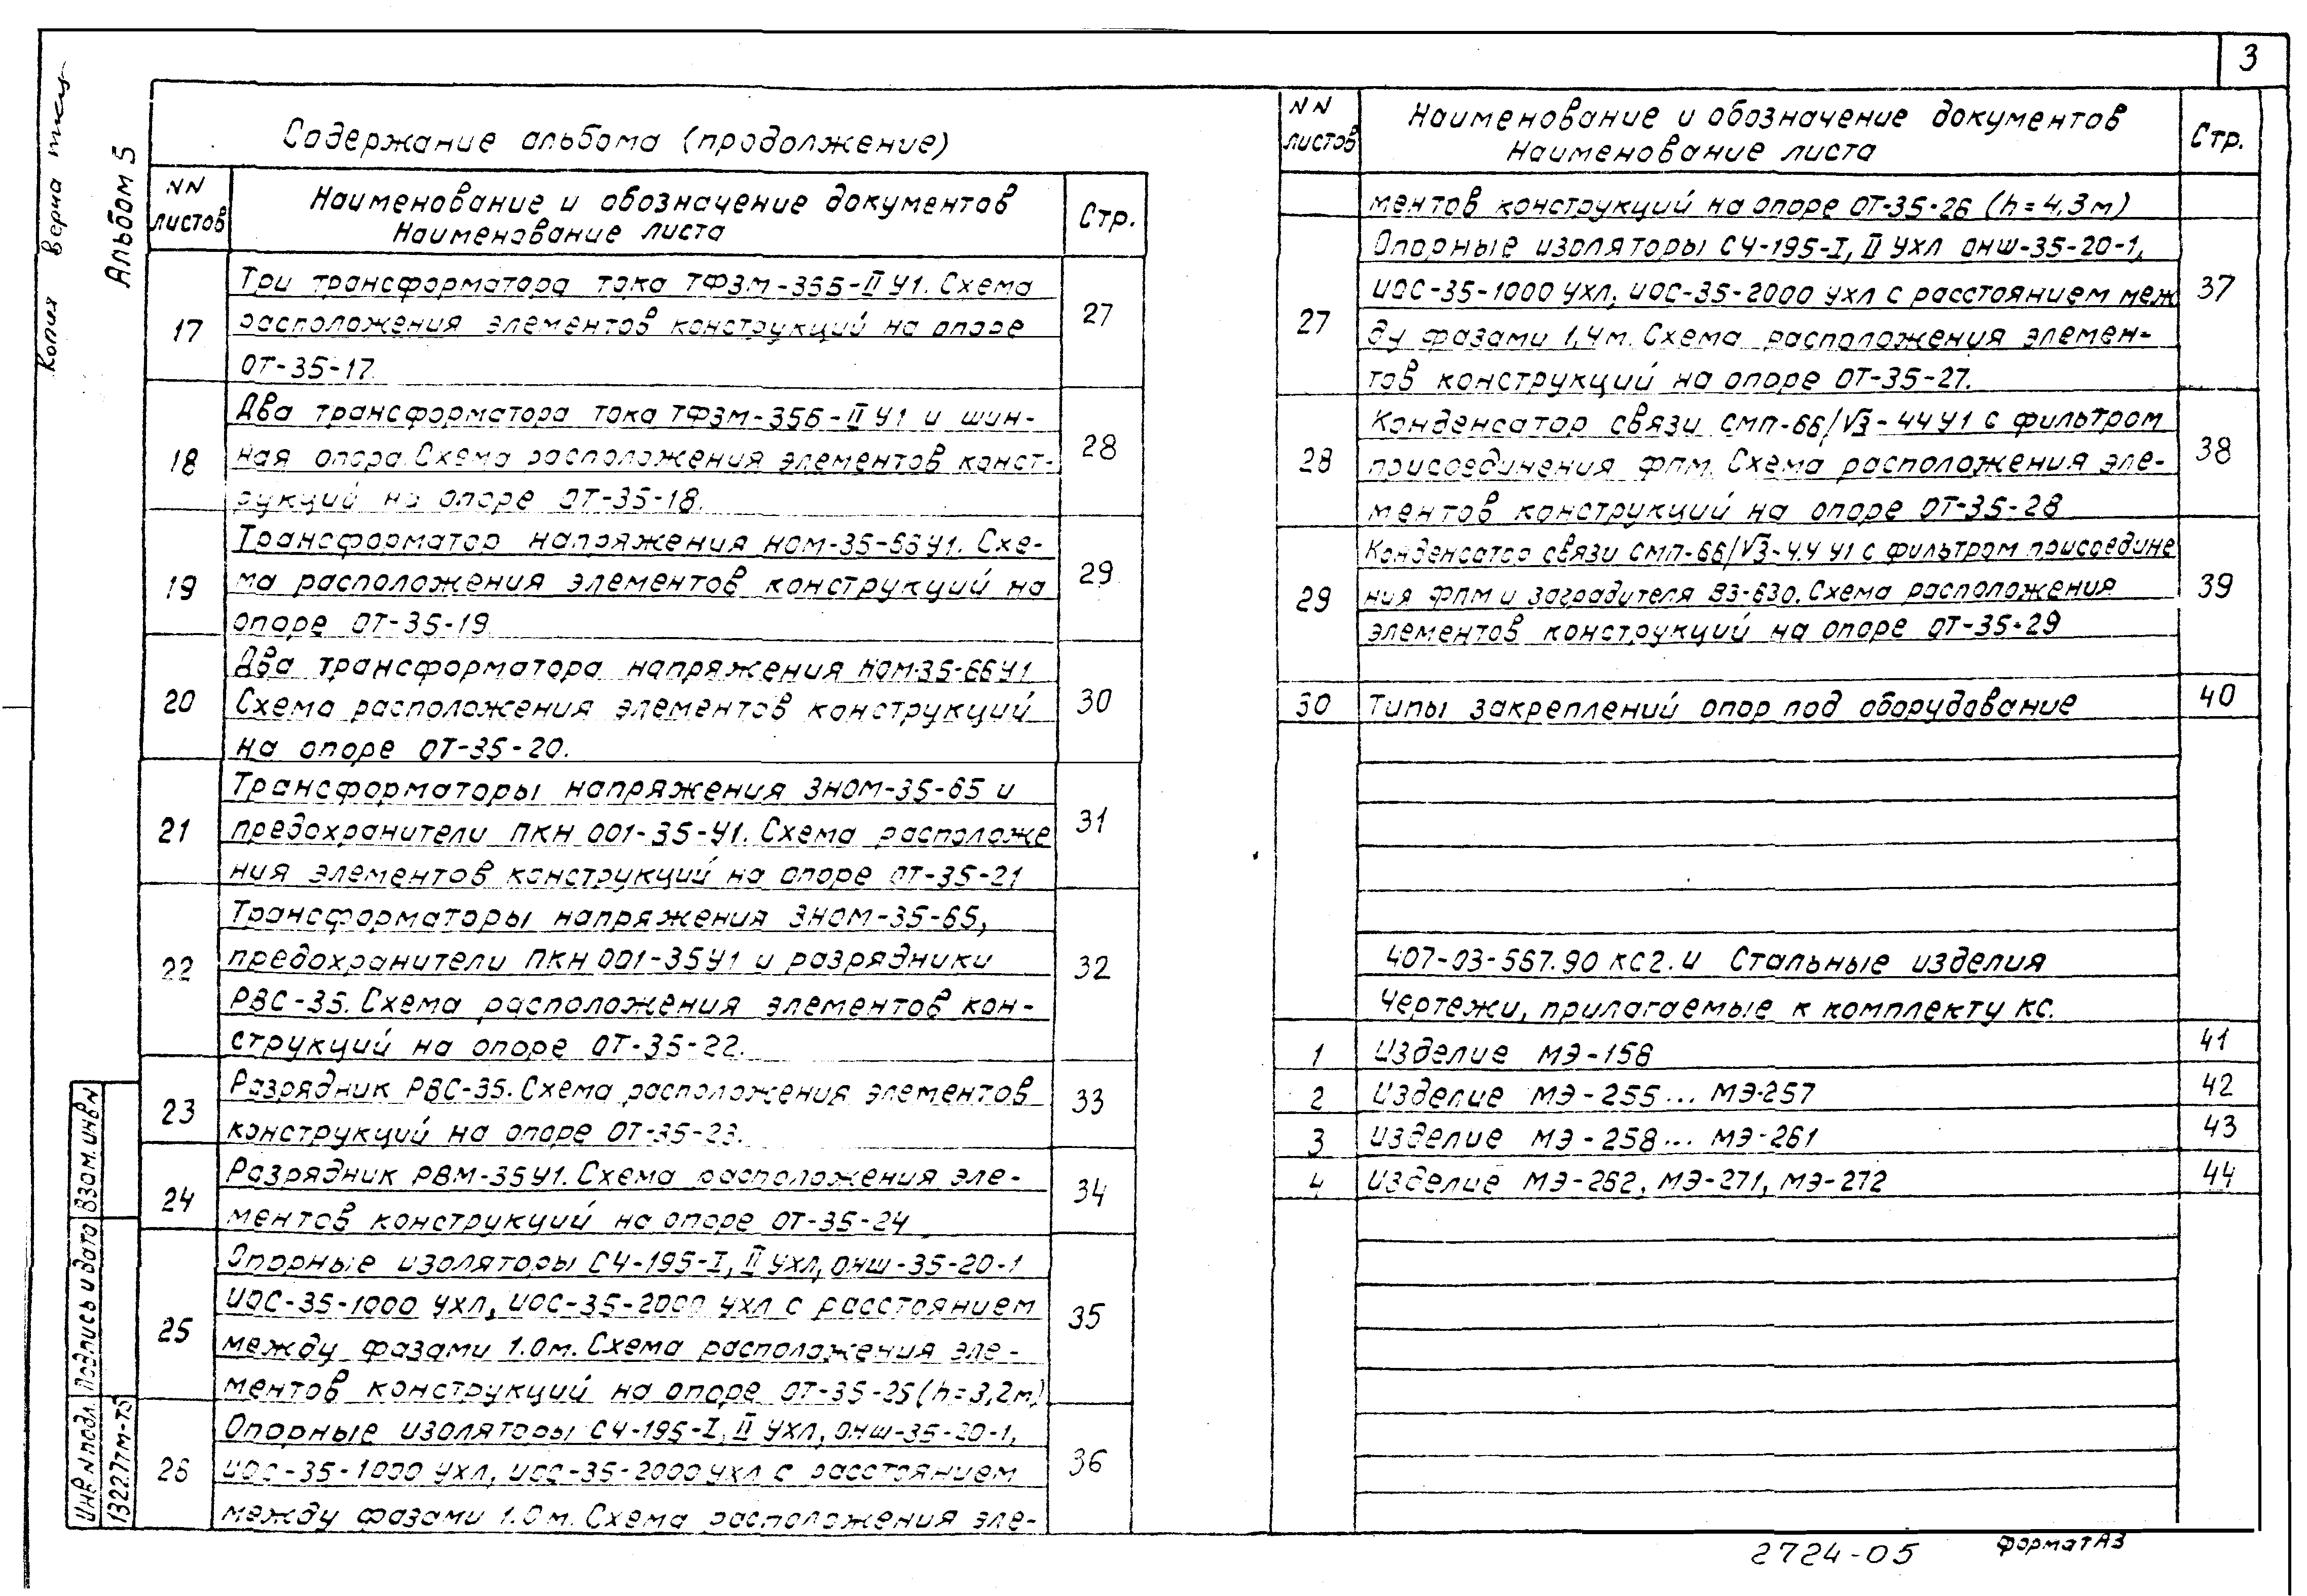 3
Копия верна
Альбом 5
Содержание альбома (продолжение)
NN листов
Наименование и обозначение документов
Наименование листа
Стр.
17
Три трансформатора тока ТФЗМ-35Б-II У1. Схема
расположения элементов конструкций на опоре
ОТ-35-17.
27
18
Два трансформатора тока ТФЗМ-35Б-II У1 и шин-
ная опора. Схема расположения элементов конст-
рукций на опоре ОТ-35-18.
28
19
Трансформатор напряжения НОМ-35-66У1. Схе-
ма расположения элементов конструкций на
опоре ОТ-35-19
29
20
Два трансформатора напряжения НОМ-35-66У1
Схема расположения элементов конструкций
на опоре ОТ-35-20.
30
21
Трансформаторы напряжения ЗНОМ-35-65 и
предохранители ПКН 001-35-У1. Схема расположе
ния элементов конструкций на опоре ОТ-35-21
31
22
Трансформаторы напряжения ЗНОМ-35-65,
предохранители ПКН 001-35У1 и разрядники
РВС-35. Схема расположения элементов кон-
струкций на опоре ОТ-35-22.
32
23
Разрядник РВС-35. Схема расположения элементов
конструкций на опоре ОТ-35-23.
33
24
Разрядник РВМ-35У1. Схема расположения эле-
ментов конструкций на опоре ОТ-35-24
34
25
Опорные изоляторы СЧ-195-I, II УХЛ, ОНШ-35-20-1
ИОС-35-1000 УХЛ, ИОС-35-2000 УХЛ с расстоянием
между фазами 1.0м. Схема расположения эле-
ментов конструкций на опоре ОТ-35-25 (h=3,2м)
35
26
Опорные изоляторы СЧ-195-I, II УХЛ, ОНШ-35-20-1,
ИОС-35-1000 УХЛ, ИОС-35-2000 УХЛ с расстоянием
между фазами 1.0м. Схема расположения эле-
36
NN листов
Наименование и обозначение документов
Наименование листа
Стр.
ментов конструкций на опоре ОТ-35-26 (h=4,3м)
27
Опорные изоляторы СЧ-195-I, II УХЛ ОНШ-35-20-1,
ИОС-35-1000 УХЛ, ИОС-35-2000 УХЛ с расстоянием меж
ду фазами 1,4м. Схема расположения элемен-
тов конструкций на опоре ОТ-35-27.
37
28
Конденсатор связи СМП-66/√3-44У1 с фильтром
присоединения ФПМ. Схема расположения эле-
ментов конструкций на опоре ОТ-35-28
38
29
Конденсатор связи СМП-66/√3-4.4 У1 с фильтром присоедине
ния ФПМ и заградителя ВЗ-630. Схема расположения
элементов конструкций на опоре ОТ-35-29
39
30
Типы закреплений опор под оборудование
40
407-03-567.90 КС2.И Стальные изделия
Чертежи, прилагаемые к комплекту КС.
1
Изделие МЭ-158
41
2
Изделие МЭ-255... МЭ-257
42
3
Изделие МЭ-258... МЭ-261
43
4
Изделие МЭ-262, МЭ-271, МЭ-272
44
Взам. инв N
Подпись и дата
Инв N подл.
13227тм-т5
2724-05
Формат А3